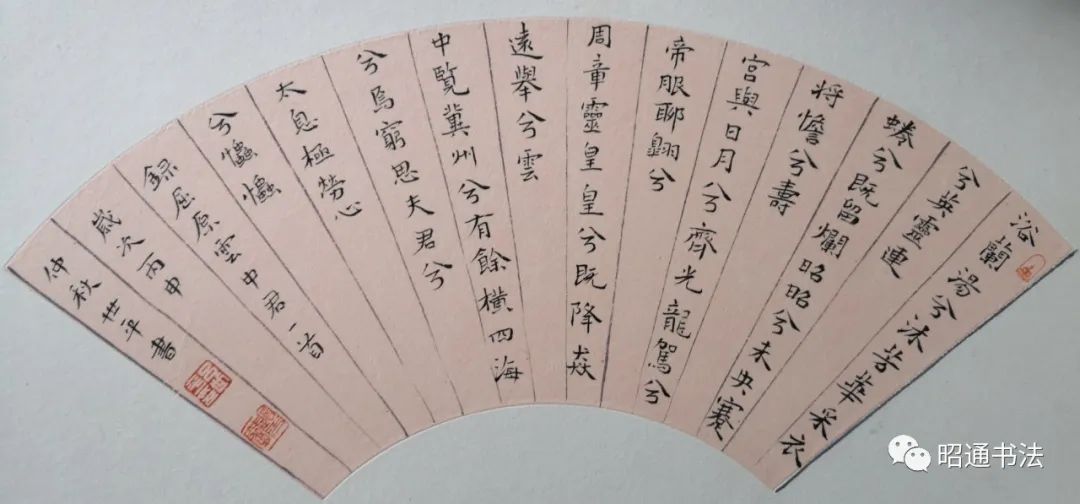 浴蘭湯兮沐芳華采衣
兮英靈連
蜷兮既留爛昭昭兮未央蹇
将憺兮壽
宫與日月兮齊光龍駕兮
帝服聊翱兮
周章靈皇皇兮既降焱
遠舉兮雲
中覽冀州兮有餘橫四海
兮焉窮思夫君兮
太息極勞心
兮
録屈原雲中君一首
歲次丙申
仲秋平書
昭通书法